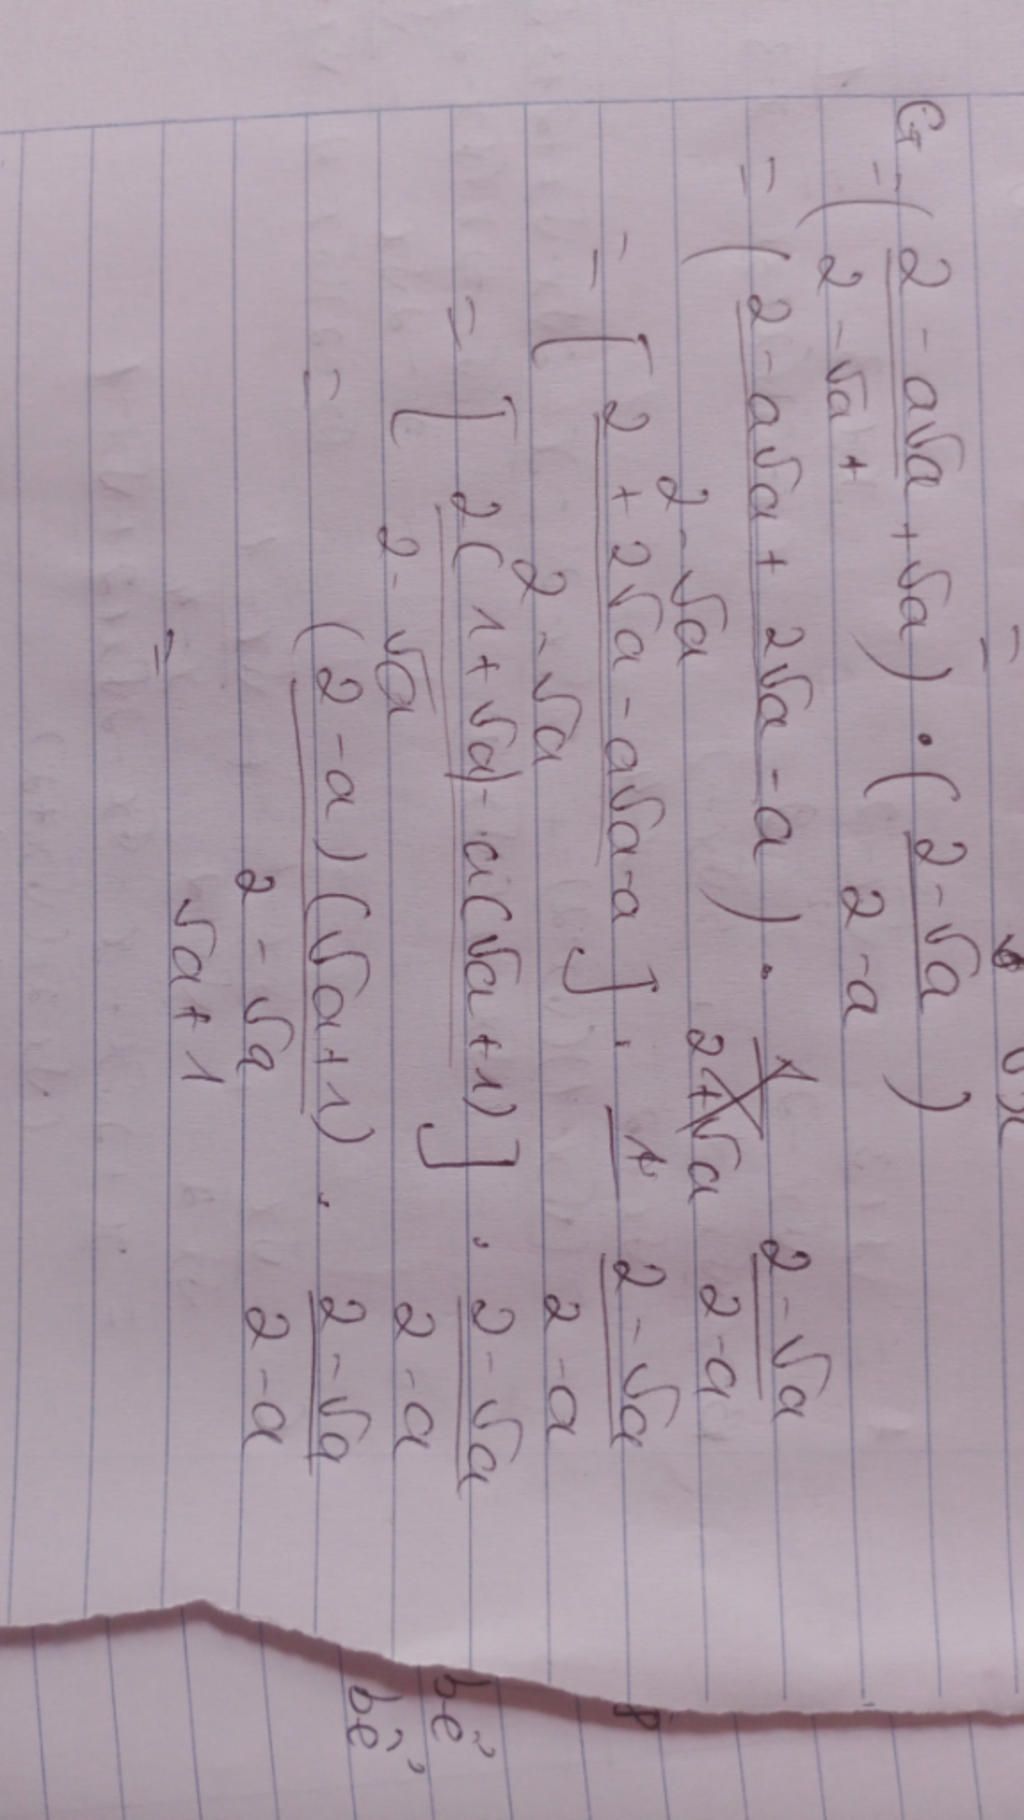 G = ( 2 - a√a / 2 - √a + √a ) . ( 2 - √a / 2 - a )
= ( 2 - a√a + 2√a - a / 2 - √a ) . 2 - √a / 2 - a
= [ 2 + 2√a - a√a - a / 2 - √a ] . 2 - √a / 2 - a
= [ 2(1 + √a) - a(√a + 1) / 2 - √a ] . 2 - √a / 2 - a
= (2 - a)(√a + 1) / 2 - √a . 2 - √a / 2 - a
= √a + 1
bể
bể